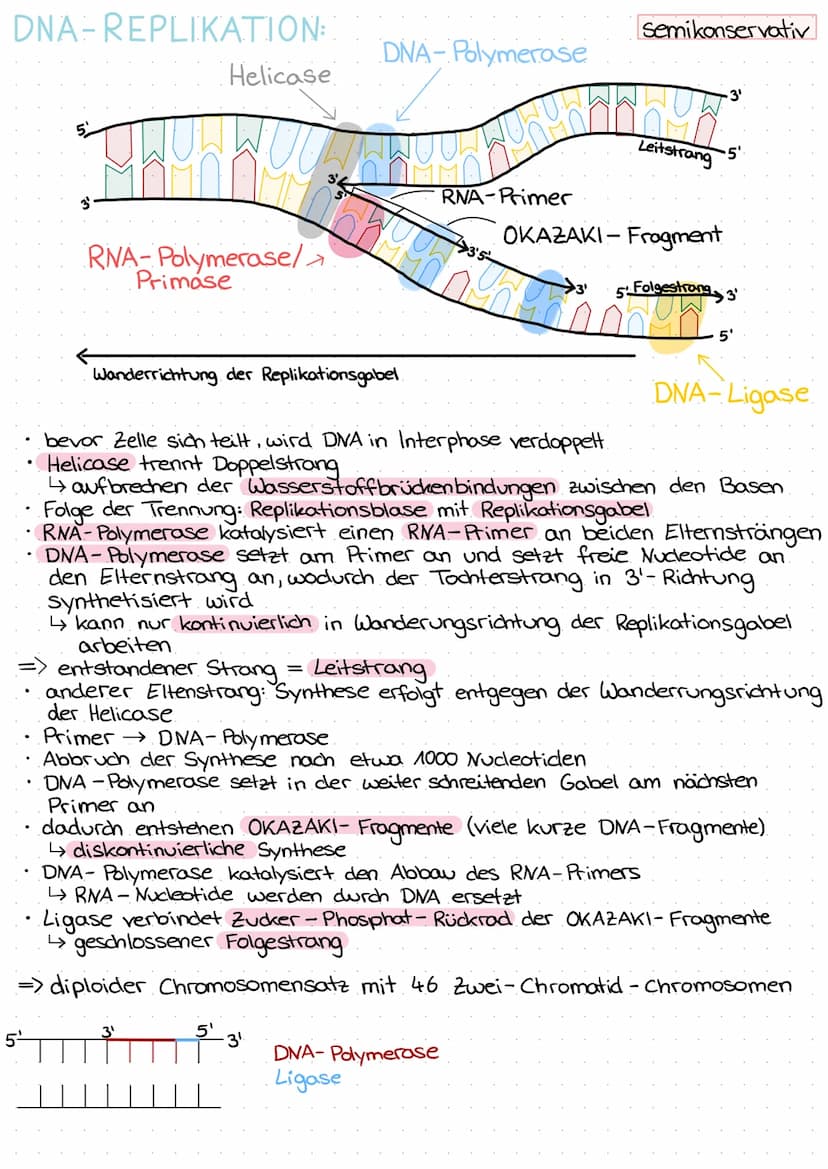 DNA-REPLIKATION:
semikonservativ
DNA-Polymerase
Helicase
5'
3'
Leitstrang
5'
3'
3'
5'
RNA-Primer
OKAZAKI-Fragment
RNA-Polymerase/
Primase
3'
5'
3'
5'
Folgestrang
3'
5'
Wanderrichtung der Replikationsgabel
DNA-Ligase
· bevor Zelle sich teilt, wird DNA in Interphase verdoppelt
· Helicase trennt Doppelstrang
↳ aufbrechen der Wasserstoffbrückenbindungen zwischen den Basen
· Folge der Trennung: Replikationsblase mit Replikationsgabel
· RNA-Polymerase katalysiert einen RNA-Primer an beiden Elternsträngen
· DNA-Polymerase setzt am Primer an und setzt freie Nucleotide an
den Elternstrang an, wodurch der Tochterstrang in 3'-Richtung
synthetisiert wird
↳ kann nur kontinuierlich in Wanderungsrichtung der Replikationsgabel
arbeiten
=> entstandener Strang = Leitstrang
· anderer Eltenstrang: Synthese erfolgt entgegen der Wanderrungsrichtung
der Helicase
· Primer → DNA-Polymerase
· Abbruch der Synthese nach etwa 1000 Nucleotiden
· DNA-Polymerase setzt in der weiter schreitenden Gabel am nächsten
Primer an
· dadurch entstehen OKAZAKI-Fragmente (viele kurze DNA-Fragmente)
↳ diskontinuierliche Synthese
· DNA-Polymerase katalysiert den Abbau des RNA-Primers
↳ RNA-Nucleotide werden durch DNA ersetzt
· Ligase verbindet Zucker-Phosphat-Rückrad der OKAZAKI-Fragmente
↳ geschlossener Folgestrang
=> diploider Chromosomensatz mit 46 Zwei-Chromatid-Chromosomen
5'
3'
5'
3'
DNA-Polymerase
Ligase